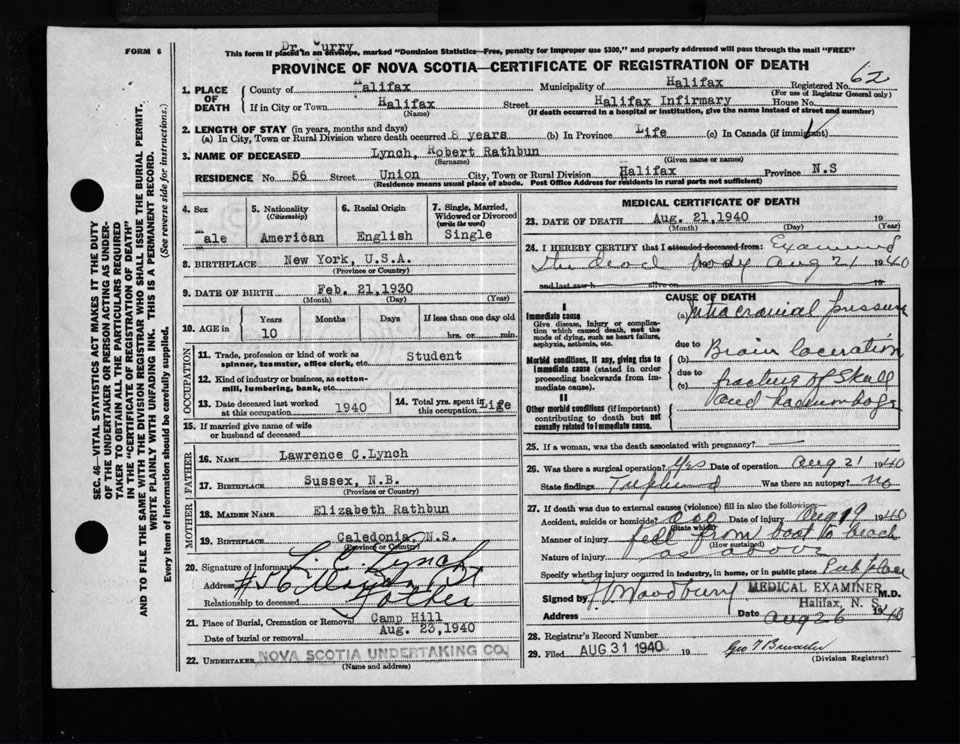 FORM 6
Dr. Curry
This form if placed in an envelope, marked "Dominion Statistics—Free, penalty for improper use $300," and properly addressed will pass through the mail "FREE"
PROVINCE OF NOVA SCOTIA—CERTIFICATE OF REGISTRATION OF DEATH
1. PLACE OF DEATH
County of Halifax Municipality of Halifax Registered No. 62
(For use of Registrar General only)
If in City or Town Halifax Street Halifax Infirmary House No.
(Name) (If death occurred in a hospital or institution, give the name instead of street and number)
2. LENGTH OF STAY (in years, months and days)
(a) In City, Town or Rural Division where death occurred 8 years (b) In Province Life (c) In Canada (if immigrant)
3. NAME OF DECEASED Lynch, Robert Rathbun
(Surname) (Given name or names)
RESIDENCE No. 56 Street Union City, Town or Rural Division Halifax Province N.S
(Residence means usual place of abode. Post Office Address for residents in rural parts not sufficient)
4. Sex Male
5. Nationality (Citizenship) American
6. Racial Origin English
7. Single, Married, Widowed or Divorced (write the word) Single
8. BIRTHPLACE New York, U.S.A.
(Province or Country)
9. DATE OF BIRTH Feb. 21,1930
(Month) (Day) (Year)
10. AGE in Years Months Days If less than one day
10 hrs. or min.
OCCUPATION
11. Trade, profession or kind of work as spinner, teamster, office clerk, etc. Student
12. Kind of industry or business, as cotton-mill, lumbering, bank, etc.
13. Date deceased last worked at this occupation 1940
14. Total yrs. spent in this occupation Life
15. If married give name of wife or husband of deceased
FATHER
16. NAME Lawrence C.Lynch
17. BIRTHPLACE Sussex, N.B.
(Province or Country)
MOTHER
18. MAIDEN NAME Elizabeth Rathbun
19. BIRTHPLACE Caledonia, N.S.
(Province or Country)
20. Signature of informant L. C. Lynch
Address #56 St
Relationship to deceased Father
21. Place of Burial, Cremation or Removal Camp Hill
Date of burial or removal Aug. 23,1940
22. UNDERTAKER NOVA SCOTIA UNDERTAKING CO.
(Name and address)
MEDICAL CERTIFICATE OF DEATH
23. DATE OF DEATH Aug. 21,1940 19
(Month) (Day) (Year)
24. I HEREBY CERTIFY that I attended deceased from: Examined
the dead body Aug 21 1940
and last saw h alive on 19
CAUSE OF DEATH
I
Immediate cause
Give disease, injury or complication which caused death, not the mode of dying, such as heart failure, asphyxia, asthenia, etc.
(a) Intracranial pressure
due to
Morbid conditions, if any, giving rise to immediate cause (stated in order proceeding backwards from immediate cause).
(b) Brain laceration
due to
(c) fracture of Skull
and haemorrhage
II
Other morbid conditions (if important) contributing to death but not causally related to immediate cause.
25. If a woman, was the death associated with pregnancy?
26. Was there a surgical operation? Yes Date of operation Aug 21 1940
State findings Trephined Was there an autopsy? no
27. If death was due to external causes (violence) fill in also the following
Accident, suicide or homicide? acc Date of injury Aug 19 1940
(State which)
Manner of injury fell from boat to beach
(How sustained)
Nature of injury as above
Specify whether injury occurred in industry, in home, or in public place Pub place
Signed by Woodbury MEDICAL EXAMINER M.D.
Halifax, N. S.
Address Date Aug 26 1940
28. Registrar's Record Number
29. Filed AUG 31 1940 19
(Division Registrar)
SEC. 46—VITAL STATISTICS ACT MAKES IT THE DUTY
OF THE UNDERTAKER OR PERSON ACTING AS UNDERTAKER TO OBTAIN ALL THE PARTICULARS REQUIRED
IN THE "CERTIFICATE OF REGISTRATION OF DEATH"
AND TO FILE THE SAME WITH THE DIVISION REGISTRAR WHO SHALL ISSUE THE BURIAL PERMIT.
WRITE PLAINLY WITH UNFADING INK. THIS IS A PERMANENT RECORD.
Every item of information should be carefully supplied. (See reverse side for instructions.)